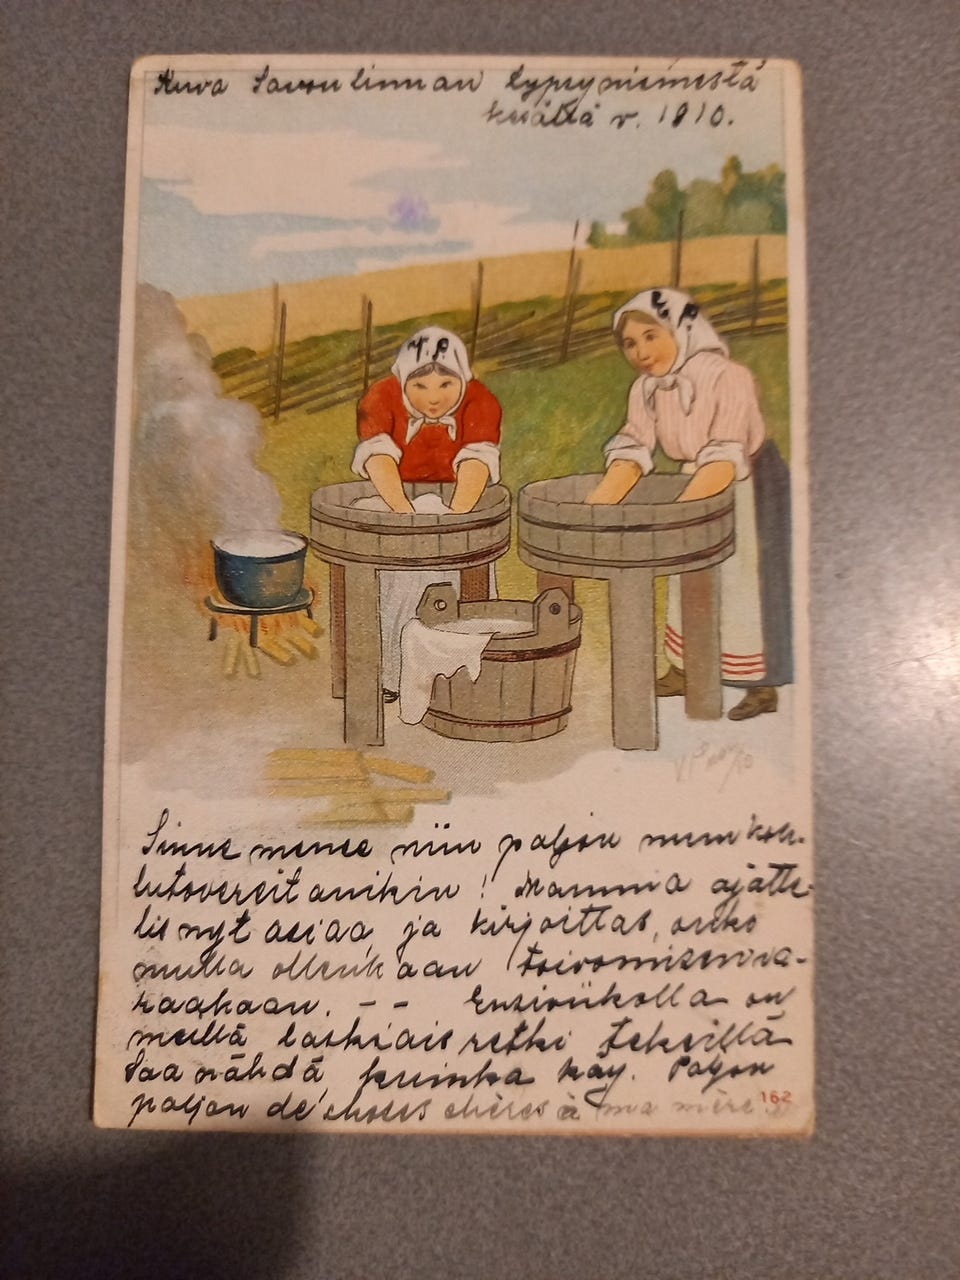 Kuva Savonlinnan Lypsyniemestä
kesältä v. 1910.
E. P.
V. P.
Sinne menee niin paljon muni kou-
lutovereitanikin! Mamma ajatte-
lis nyt asiaa ja kirjoittas, onko
mulla ollenkaan toivomisen va-
raakaan. - - Ensiviikolla on
meillä laskiaisretki tekeillä
Saa nähdä kuinka käy. Paljon
paljon de choses chères à ma mère
162